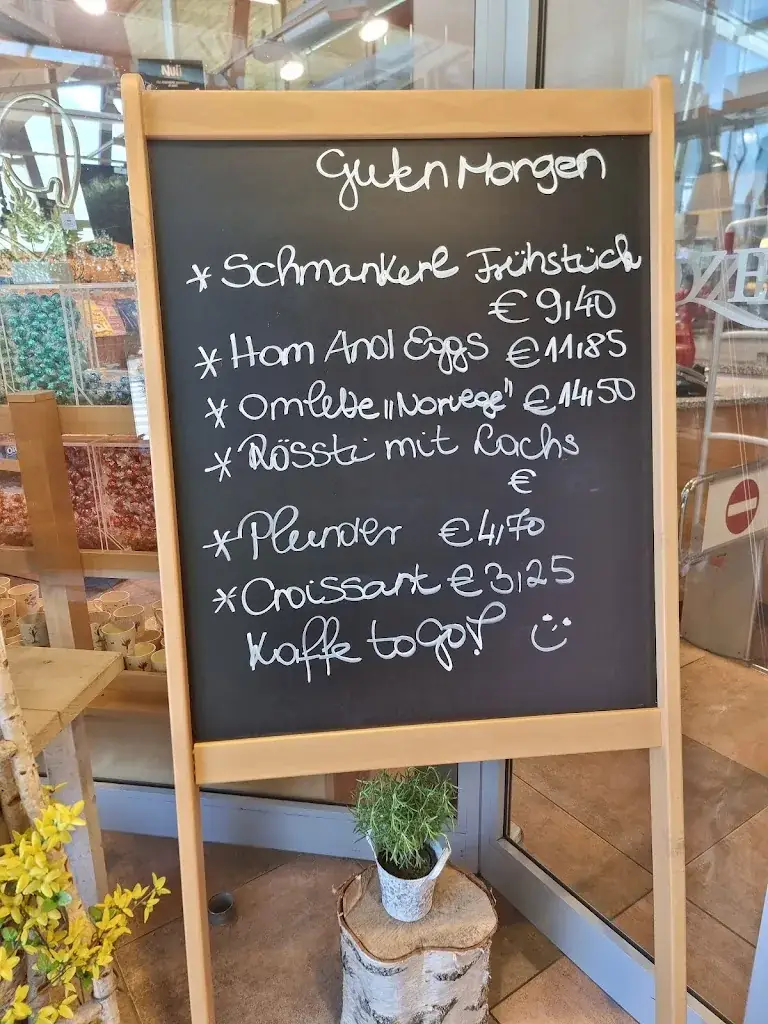 Guten Morgen
* Schmankerl Frühstück
€ 9,40
* Ham And Eggs € 11,85
* Omlette „Norvege" € 14,50
* Rössti mit Lachs
€
* Plunder € 4,70
* Croissant € 3,25
Kaffe to go! :)